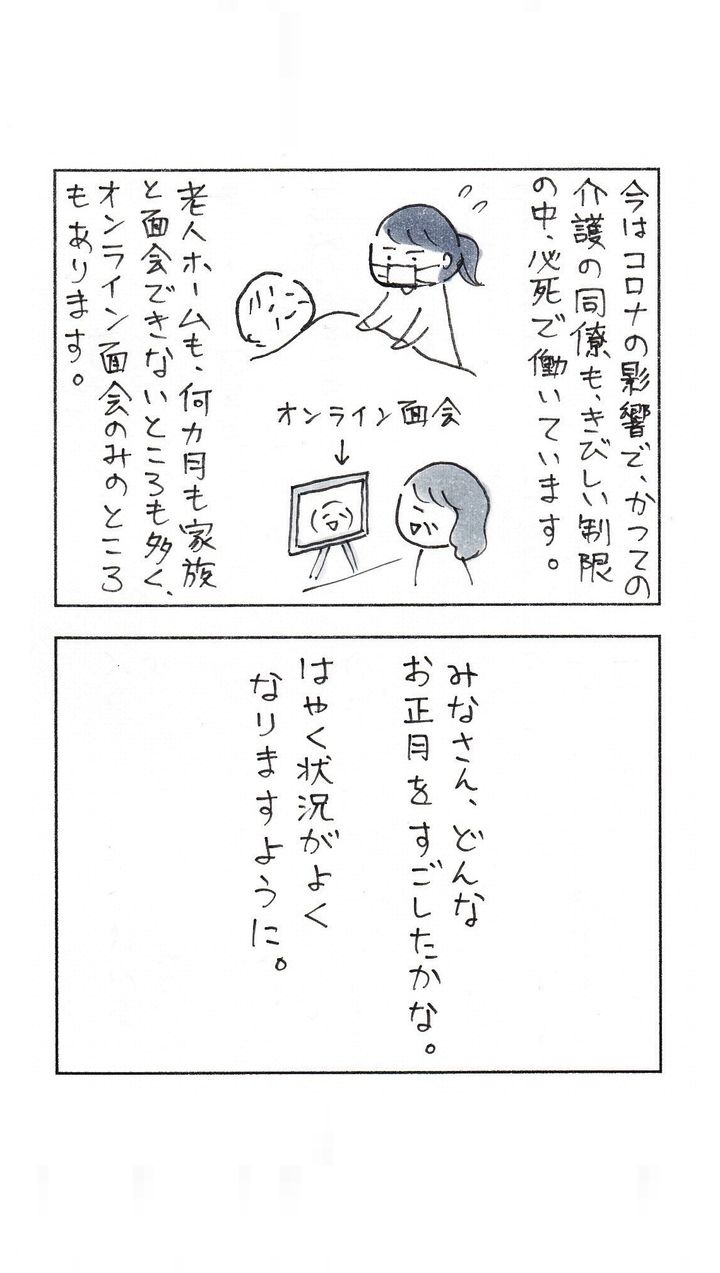 今はコロナの影響で、かつての
介護の同僚も、きびしい制限
の中、必死で働いています。
オンライン面会
↓
老人ホームも、何カ月も家族
と面会できないところも多く、
オンライン面会のみのところ
もあります。
みなさん、どんな
お正月をすごしたかな。
はやく状況がよく
なりますように。